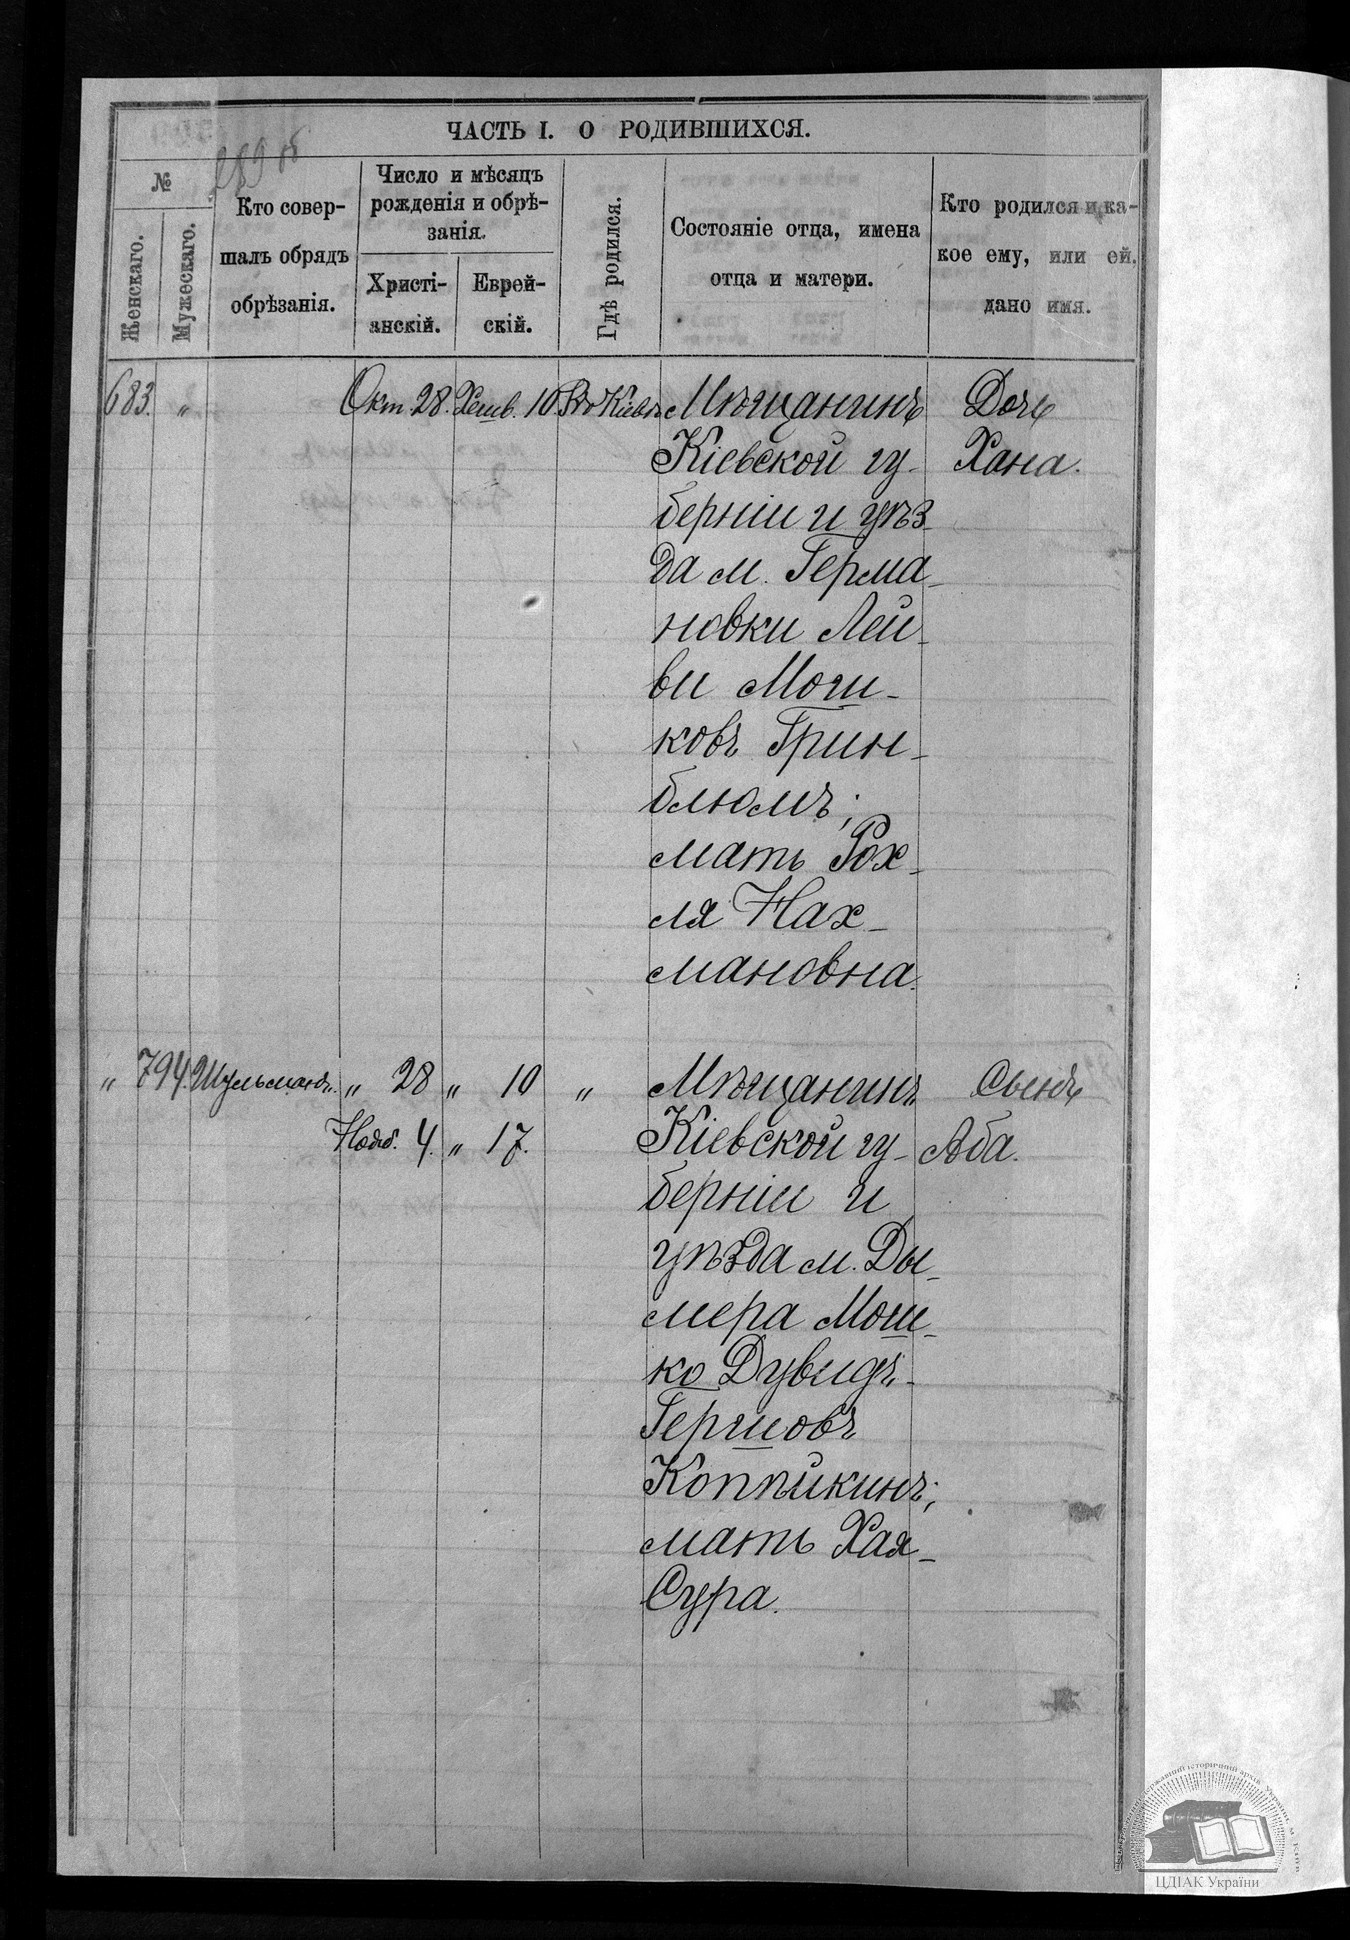 ЧАСТЬ I. О РОДИВШИХСЯ.
289 об
№
Женскаго.
Мужескаго.
Кто совер-
шалъ обрядъ
обрѣзанія.
Число и мѣсяцъ
рожденія и обрѣ-
занія.
Христі-
анскій.
Еврей-
скій.
Гдѣ родился.
Состояніе отца, имена
отца и матери.
Кто родился и ка-
кое ему, или ей.
дано имя.
683. „ Окт. 28. Хешв. 10. Въ Кіевѣ Мѣщанинъ Дочь
Кіевской гу- Хана.
берніи и уѣз-
да м. Герма-
новки Лей-
ви Мош-
ковъ Грин-
блюмъ;
мать Рох-
ля Нах-
мановна.
„ 794. Шульманъ. „ 28 „ 10 „ Мѣщанинъ Сынъ
Нояб. 4. „ 17. Кіевской гу- Аба.
берніи и
уѣзда м. Ды-
мера Мош-
ко Дувидъ-
Гершовъ
Коппйкинъ;
мать Хая-
Сура.
ЦДІАК України